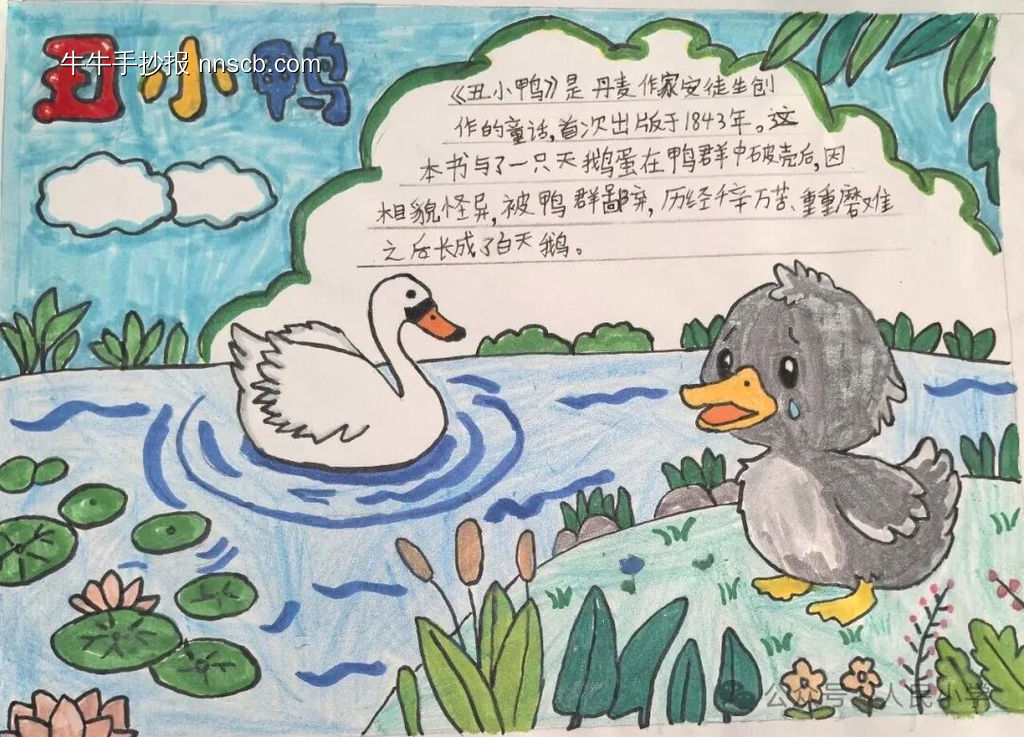 丑小鸭
牛牛手抄报 nnscb.com
《丑小鸭》是丹麦作家安徒生创
作的童话,首次出版于1843年。这
本书写了一只天鹅蛋在鸭群中破壳后,因
相貌怪异,被鸭群鄙弃,历经千辛万苦、重重磨难
之后长成了白天鹅。
公众号 人民小学